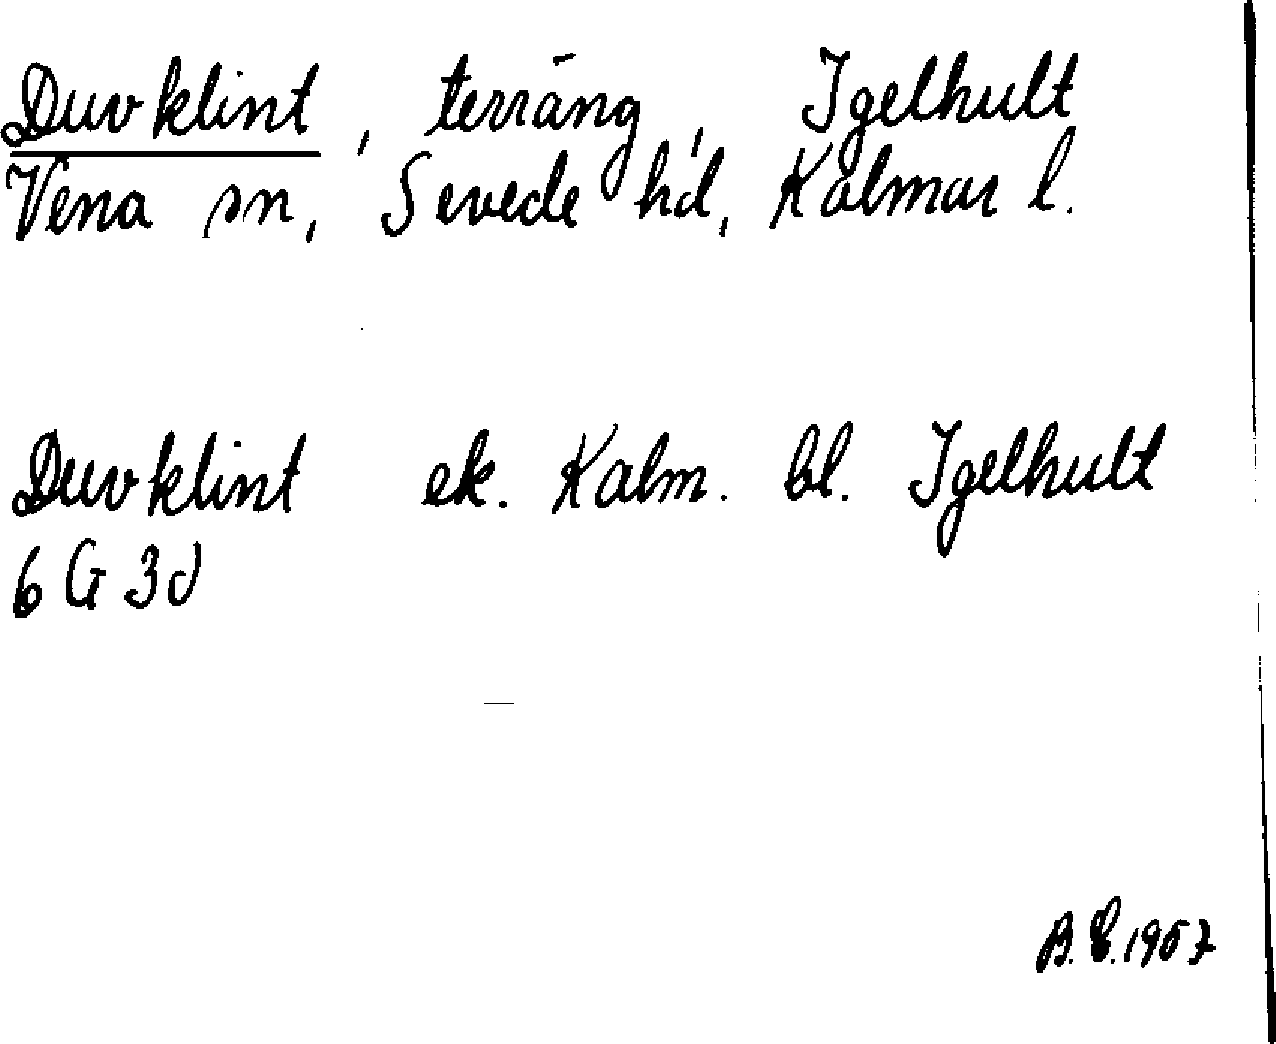 Duvklint, terräng, Igelhult
Vena sn, Sevede hd, Kalmar l.
Duvklint ek. Kalm. bl. Igelhult
6 G 3d
B.E. 1957